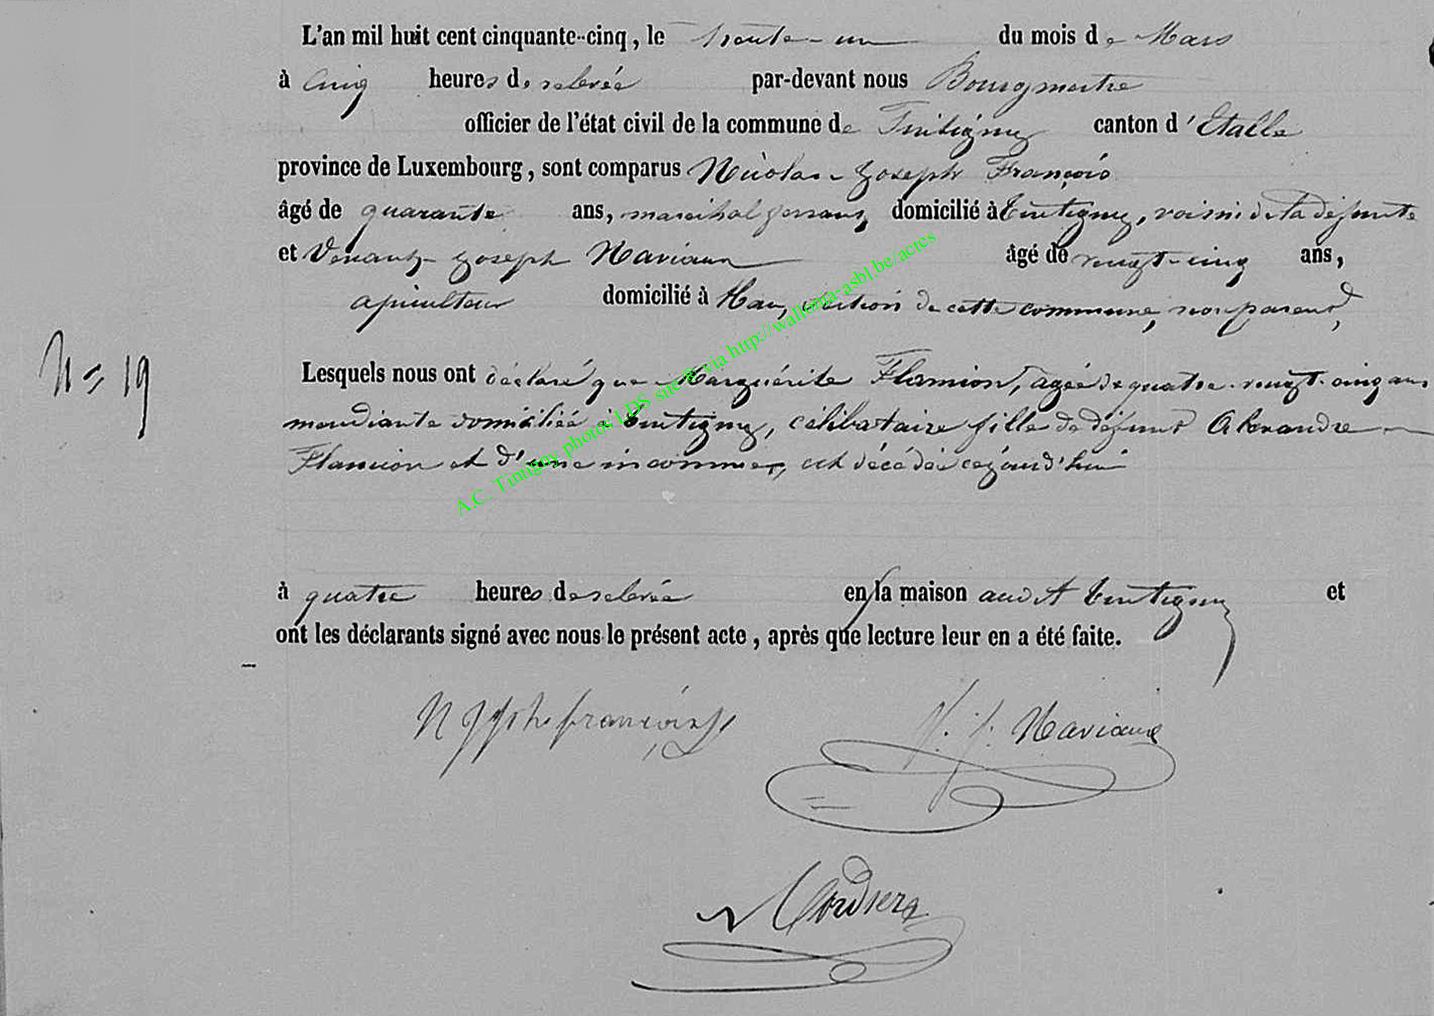 L'an mil huit cent cinquante-cinq, le trente-un du mois de Mars
à cinq heures de relevée par-devant nous Bourgmestre
officier de l'état civil de la commune de Tintigny canton d'Etalle
province de Luxembourg, sont comparus Nicolas Joseph François
âgé de quarante ans, maréchal ferrant, domicilié à Tintigny, voisin de la défunte
et Venant Joseph Naviaux âgé de vingt-cinq ans,
apiculteur domicilié à Han, section de cette commune, non parent,
N° 19
Lesquels nous ont déclaré que Marguérite Flamion, agée de quatre-vingt-cinq ans
mendiante domiciliée à Tintigny, célibataire fille de défunt Alexandre
Flamion et d'une inconnue, est décédée cejourd'hui
à quatre heures de relevée en la maison audit Tintigny et
ont les déclarants signé avec nous le présent acte, après que lecture leur en a été faite.
N Jph françois
V. J. Naviaux
A.C. Tintigny photos LDS site via http://wallonia-asbl.be/actes